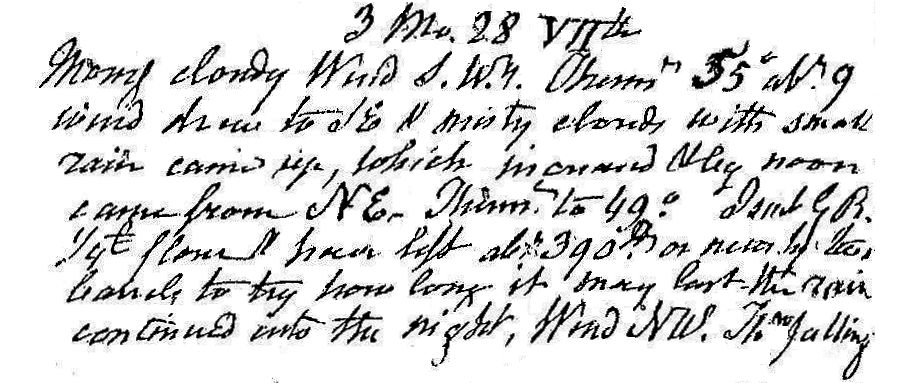 3 Mo. 28 VIIth
Morng cloudy Wind S.W. Therm 55° abt 9
wind drew to SE & misty clouds with small
rain came up, which increased & by noon
came from NE. Therm to 49° I sent G R.
1/4 ct flour & have left abt 390 lb or nearly two
barrels to try how long it may last the rain
continued into the night, Wind NW. Thmo falling